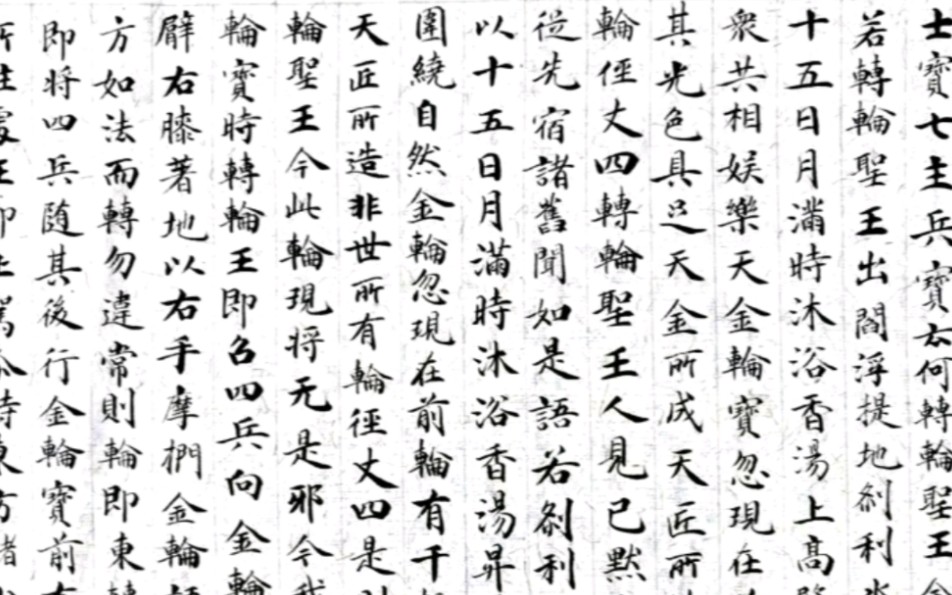 士寶七主兵寶云何轉輪聖王
若轉輪聖王出閻浮提地剎利
十五日月滿時沐浴香湯上高
衆共相娛樂天金輪寶忽現在
其光色具足天金所成天匠所
輪俓丈四轉輪聖王人見已默
從先宿諸舊聞如是語若剎利
以十五日月滿時沐浴香湯昇
圍繞自然金輪忽現在前輪有千
天匠所造非世所有輪徑丈四是
輪聖王今此輪現将无是邪今我
輪寶時轉輪王即召四兵向金輪
臂右膝著地以右手摩捫金輪語
方如法而轉勿違常則輪即東轉
即将四兵随其後行金輪寶前有
所住處王即止駕尒時東方諸